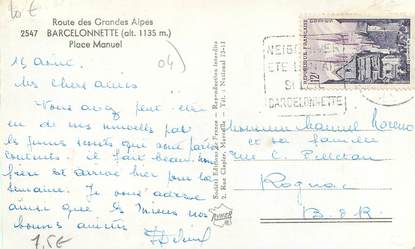 10 €
Route des Grandes Alpes
2547 BARCELONNETTE (alt. 1135 m.)
Place Manuel
(04)
15 août
Mes chers amis
Vous avez peut être eu
de mes nouvelles par
les jeunes scouts que sont partis
contents. il fait beau. mon
frère est arrivé hier pour la
semaine. Je vous adresse
ainsi que les miens nos
bons amitiés
1,5€
Société Editions de France - Reproduction interdite
2, Rue Clapier, Marseille - Tél. : National 25-11
NEIGE
ETE
SOLEIL
BARCELONNETTE
REPUBLIQUE FRANÇAISE
12F
Monsieur Manuel Moreno
et sa famille
rue C. Pelletan
Rognac
B. d R.